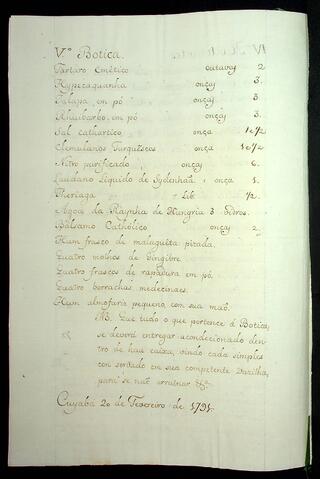 V.º Botica.
Tartaro Emetico outavas 2
Hypecaquanha onças 3.
Jalapa em pó onças 3
Rhuibarbo em pó onças 3
Sal cathartico onça 1 e 1/2
onça 1 e 1/2
Nitro purificado onças 6.
Laudano Liquido de onça 1.
Theriaga Lib. 1/2.
Agoa da Raynha de Hungria 3
Balsamo Catholico onças 2.
Hum frasco de malagueta pizada.
Quatro molhos de Gingibre.
Quatro frascos de rapadura em pó
Quatro borrachas
Hum almofariz pequeno, com sua maõ.
NB. Que tudo o que pertence á Botica,
se deverá entregar acondecionado den
tro de huã caixa, vindo cada simples
em sua competente Vazilha,
para se naõ arruinar &.ª
Cuyabá 20 de Fevereiro de 1791.